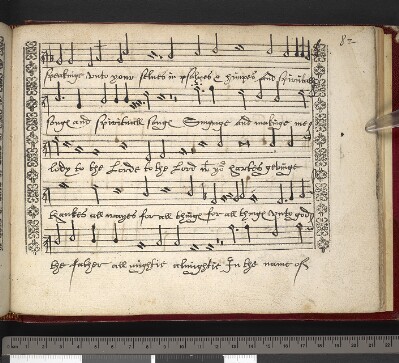 82
speakinge vnto your selues in psalmes & himpnes and spirituall
songe and spirituall songe Synginge and makinge me
lody to the Lorde to the Lord in yor hartes gevinge
thankes all wayes for all thinge for all thinge vnto god
the father all mightie almightie In the name of